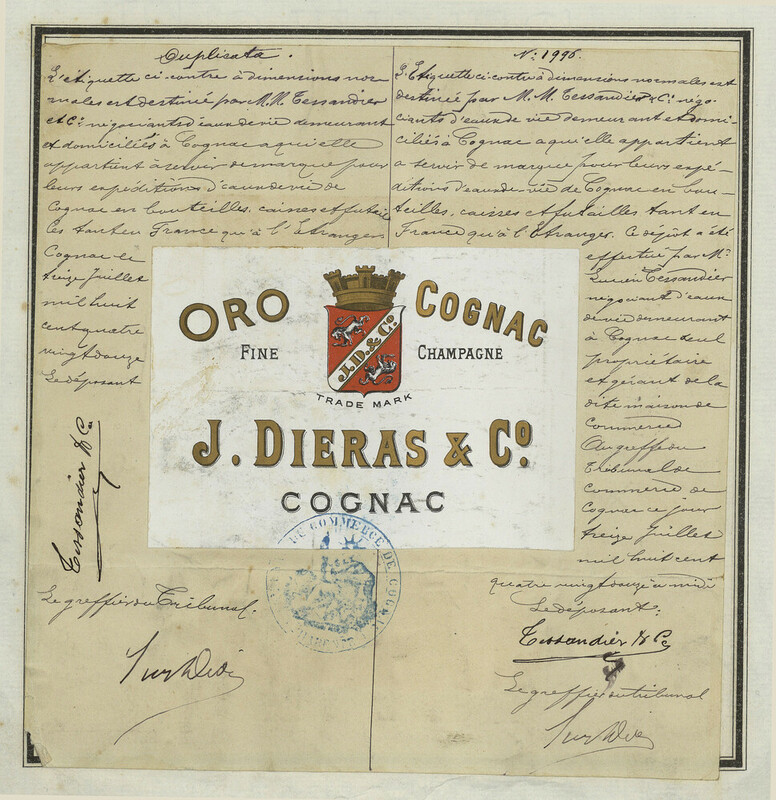 Duplicata.
L'étiquette ci contre à dimensions nor
males est destinée par M.M. Tessandier
et Cie. négociants d'eaux de vie demeurant
et domiciliés à Cognac a qui elle
appartient à servir de marque pour
leurs expéditions d'eaux de vie de
Cognac en bouteilles, caisses et futail
les tant en France qu'à l'étranger
Cognac le
treize Juillet
mil huit
cent quatre
vingt douze
Le déposant
Tessandier & Co
Le greffier du Tribunal.
No. 1996.
L'Etiquette ci contre à dimensions normales est
destinée par M.M. Tessandier & Ce. négo-
ciants d'eaux de vie demeurant et domi-
ciliés à Cognac a qui elle appartient
a servir de marque pour leurs expé-
ditions d'eaux de vie de Cognac en bou-
teilles, caisses et futailles tant en
France qu'à l'Etranger. Ce dépôt a été
effectué par Mr.
Lucien Tessandier
négociant d'eaux
de vie demeurant
à Cognac seul
propriétaire
et gérant de la
dite maison de
Commerce
Au greffe du
Tribunal de
Commerce de
Cognac ce jour
treize Juillet
mil huit cent
quatre vingt douze à midi
Le déposant:
Tessandier & Co
Le greffier du tribunal
ORO COGNAC
FINE CHAMPAGNE
J.D. & Co
TRADE MARK
J. DIERAS & Co.
COGNAC
DE COMMERCE DE COGNAC
CHARENTE